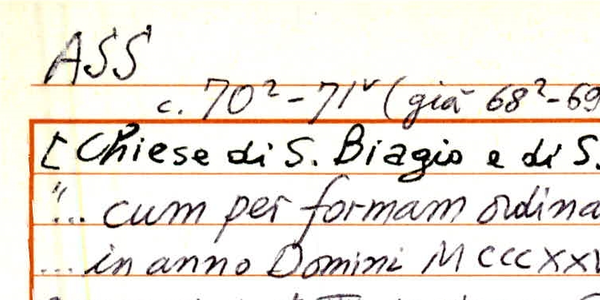 ASS
c. 70r-71v (già 68r-69
[Chiese di S. Biagio e di S.
"... cum per formam ordina
... in anno Domini MCCCXXV